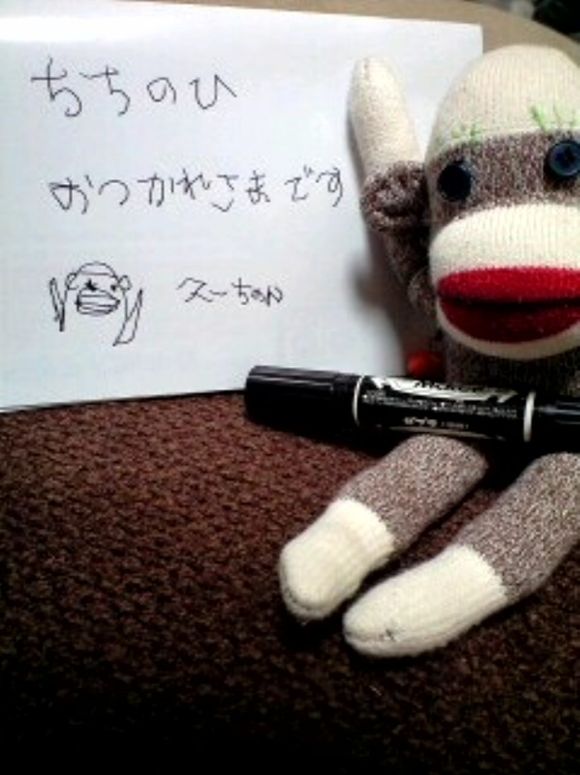 ちちのひ
おつかれさまです
えーちゃん